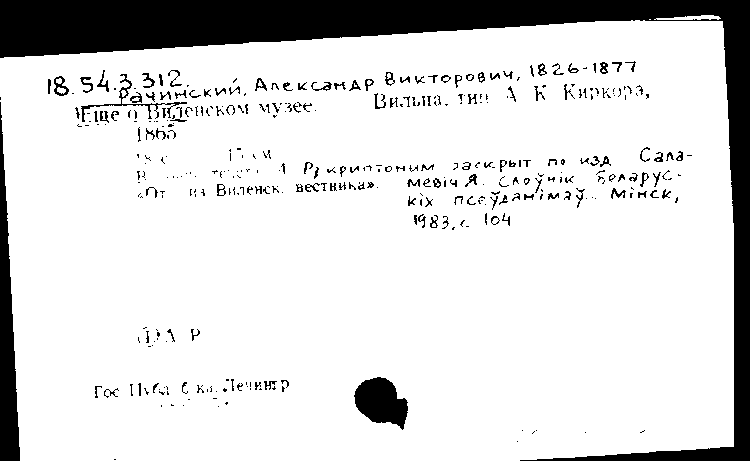 18.54.3.312.
Рачинский, Александр Викторович, 1826-1877
Еще о Виленском музее. Вильна, тип А К Киркора,
1865
18 с 17 см
А. Р; криптоним раскрыт по изд Сала-
«От из Виленск. вестника». мевіч Я. Слоўнік беларус-
кіх псеўданімаў.. Мінск,
1983, с 104
А Р
Гос Публ б ка, Ленингр